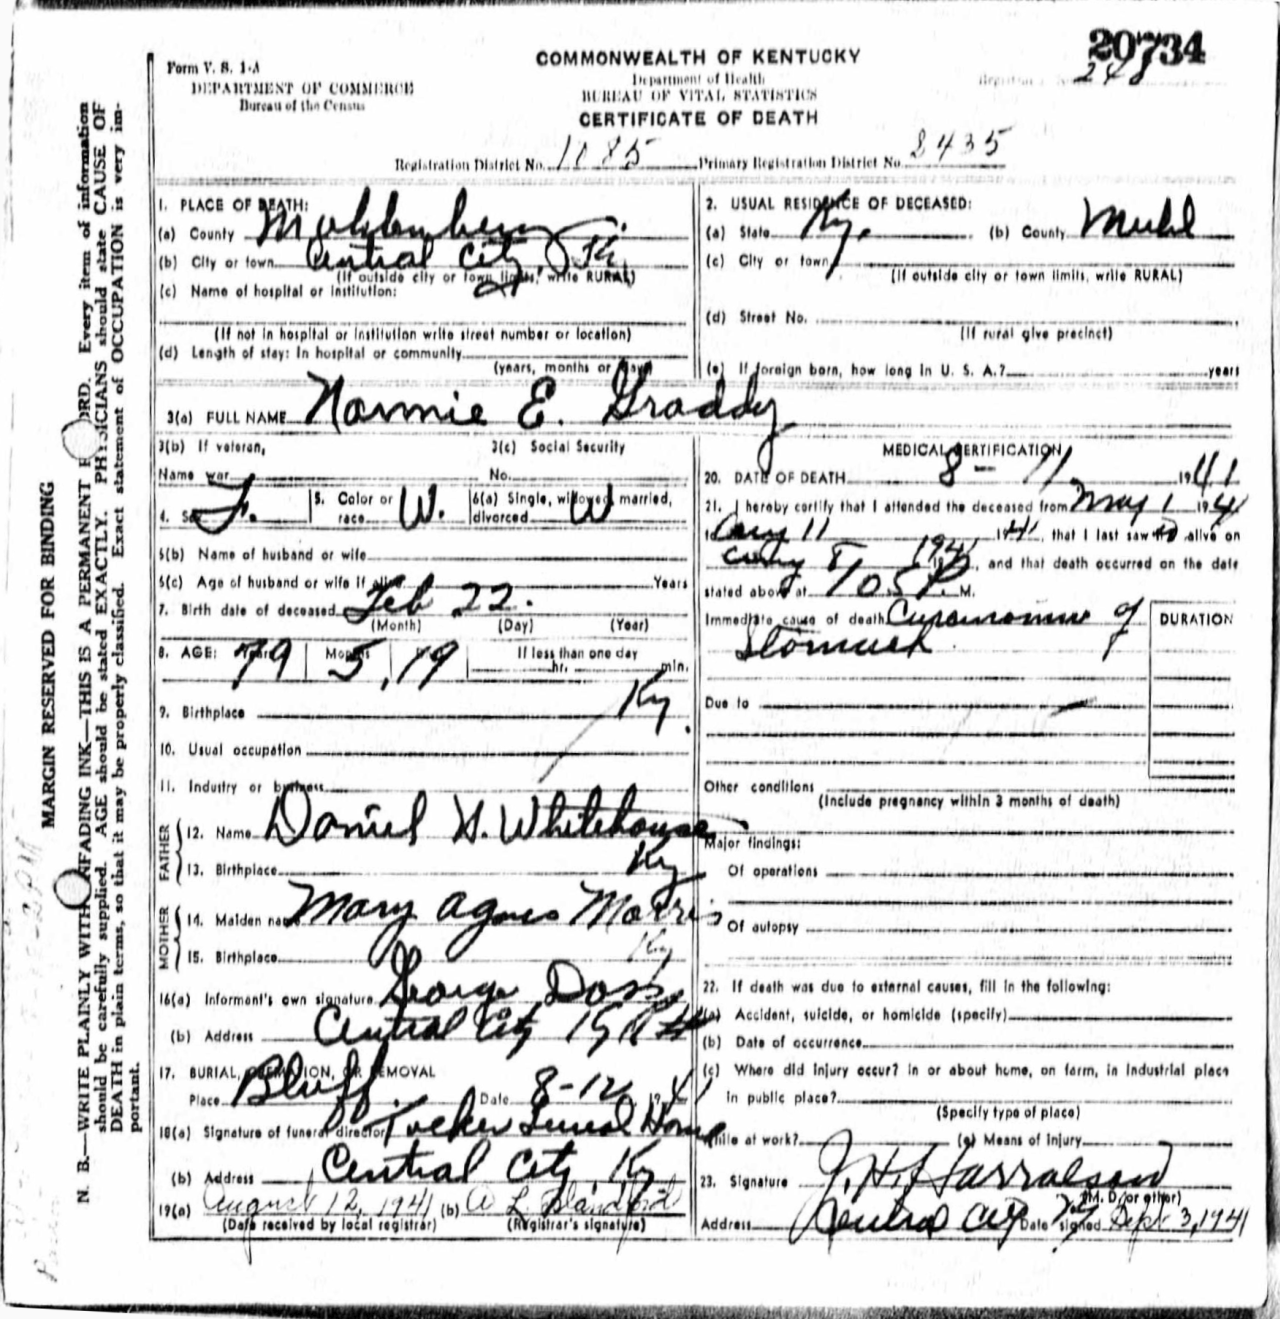 20734
Form V. S. 1-A
COMMONWEALTH OF KENTUCKY
DEPARTMENT OF COMMERCE
Department of Health
Bureau of the Census
BUREAU OF VITAL STATISTICS
248
CERTIFICATE OF DEATH
Registration District No. 1085 Primary Registration District No. 8435
MARGIN RESERVED FOR BINDING
N. B.—WRITE PLAINLY WITH UNFADING INK—THIS IS A PERMANENT RECORD. Every item of information
should be carefully supplied. AGE should be stated EXACTLY. PHYSICIANS should state CAUSE OF
DEATH in plain terms, so that it may be properly classified. Exact statement of OCCUPATION is very im-
portant.
1. PLACE OF DEATH:
(a) County Muhlenberg
(b) City or town Central City, Ky
(If outside city or town limits, write RURAL)
(c) Name of hospital or institution:
(If not in hospital or institution write street number or location)
(d) Length of stay: In hospital or community
(years, months or days)
2. USUAL RESIDENCE OF DECEASED:
(a) State Ky. (b) County Muhl
(c) City or town
(If outside city or town limits, write RURAL)
(d) Street No.
(If rural give precinct)
(e) If foreign born, how long in U. S. A.? years
3(a) FULL NAME Nannie E. Graddy
3(b) If veteran, 3(c) Social Security
Name war No.
4. Sex F. 5. Color or race W. 6(a) Single, widowed, married, divorced W
6(b) Name of husband or wife
6(c) Age of husband or wife if alive Years
7. Birth date of deceased Feb 22.
(Month) (Day) (Year)
8. AGE: Years 79 Months 5 19 If less than one day
hr. min.
9. Birthplace Ky.
10. Usual occupation
11. Industry or business
FATHER
12. Name Daniel H. Whitehouse
13. Birthplace Ky
MOTHER
14. Maiden name Mary Agnes Morris
15. Birthplace Ky
16(a) Informant's own signature George Doss
(b) Address Central City Ky
17. BURIAL, CREMATION, OR REMOVAL
Place Bluff Date 8-12 1941
18(a) Signature of funeral director Tucker Funeral Home
(b) Address Central City, Ky
19(a) August 12, 1941 (b) A L Blandford
(Date received by local registrar) (Registrar's signature)
MEDICAL CERTIFICATION
20. DATE OF DEATH 8-11 1941
21. I hereby certify that I attended the deceased from May 1 1941
to Aug 11 1941, that I last saw alive on
Aug 8 1941, and that death occurred on the date
stated above at 105 P. M.
Immediate cause of death Carcinoma of
Stomach
DURATION
Due to
Other conditions
(Include pregnancy within 3 months of death)
Major findings:
Of operations
Of autopsy
22. If death was due to external causes, fill in the following:
(a) Accident, suicide, or homicide (specify)
(b) Date of occurrence
(c) Where did injury occur? in or about home, on farm, in industrial place
in public place?
(Specify type of place)
While at work? (e) Means of injury
23. Signature J. H. Harralson
(M. D. or other)
Address Central City Ky Date signed Sept 3, 1941